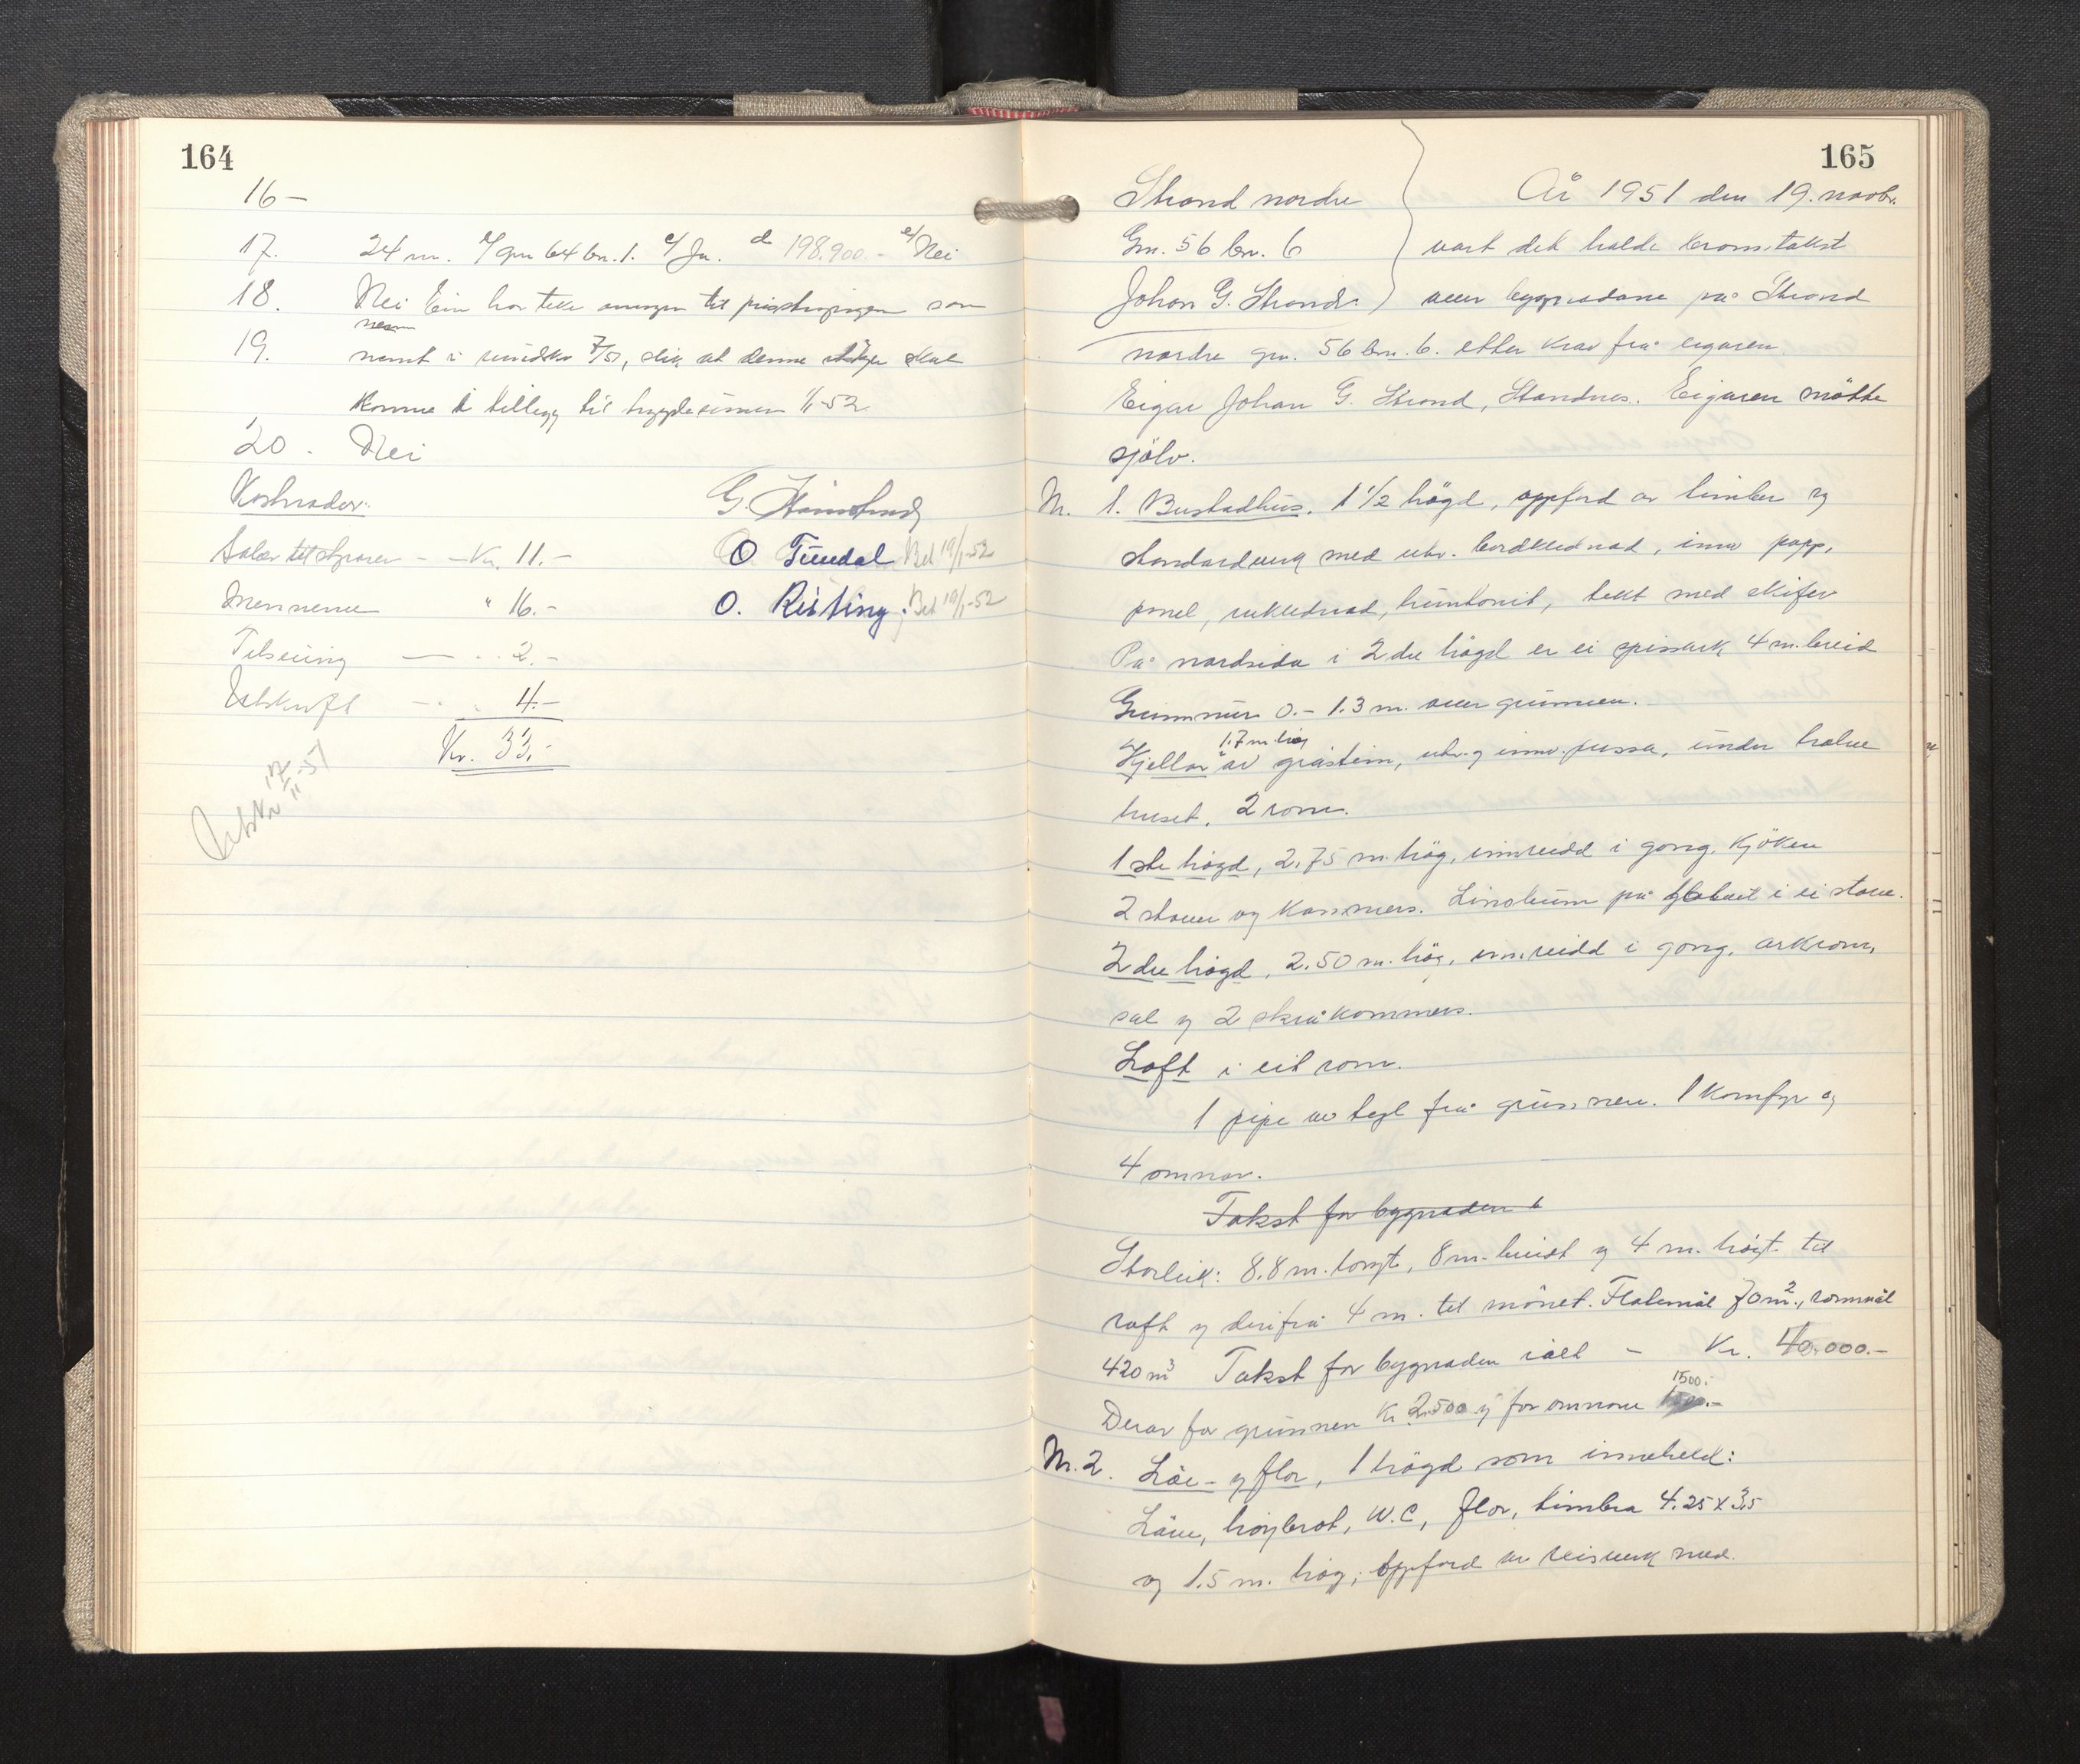 164
16 –
17. 24 m. b/ gnr 64 bn. 1. c/ Ja. d 198.900.- e/ Nei
18. Nei Ein har teke omsyn til prisstigingen som
19. nemt i rundskr 7/51, slik at denne skal
Komme i tillegg til byggjesummen 1/1-52
20. Nei
Kostnader:
Salær til styraren - - Kr. 11.-
Mennene " 16.-
Tilsening — - - 2.-
Utskrift - - 4.-
Kr. 33.-
Utskr 17/11-51
G.
O Tundal Bet 19/1-52
O. Risting. Bet 19/1-52
165
Strand nordre År 1951 den 19. novbr.
Gn. 56 bn. 6 vart det halde branntakst
Johan G. Strand. over bygnadane på Strand
nordre gn. 56 bn. 6. etter krav frå eigaren.
Eigar Johan G. Strand, Standnes. Eigaren møtte
sjølv.
Nr. 1. Bustadhus. 1 1/2 högd, oppförd av timber og
standardverk med utv. bordklednad, innv papp,
panel, huntonit, tekt med skifer
På nordsida i 2dre högd er ei spissark 4 m. breid
Grunnmur 0.- 1.3 m. over grunnen.
Kjellar 1.7 m. høg av gråstein, utv. og innv. pussa, under halve
huset, 2 rom.
1ste högd, 2.75 m. hög, innreidd i gong, kjöken
2 stover og kammers. Linoleum på golvet i ei stove.
2dre högd, 2.50 m. hög, innreidd i gong, arkrom,
sal og 2 skråkammers.
Loft i eit rom.
1 pipe av tegl frå grunnen. 1 komfyr og
4 omnar.
Takst for bygnaden
Storleik: 8.8 m. langt, 8 m. breidt og 4 m. högt til
raft og derifrå 4 m. til mönet. Flatemål 70 m2., rommål
420 m3 Takst for bygnaden ialt - Kr. 40.000.-
Derav for grunnen Kr. 2.500 og for omnane 1500.-
Nr. 2. Löe- og flor, 1 högd som inneheld:
Löve, höybrot, W.C, flor, timbra 4.25 x 3,5
og 1.5 m. hög, oppförd av reisverk med